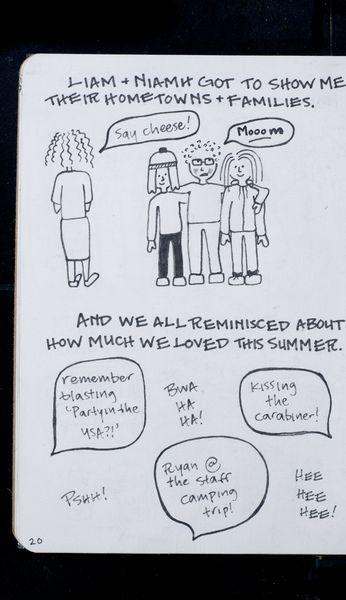 LIAM + NIAMH GOT TO SHOW ME
THEIR HOMETOWNS + FAMILIES.
Say cheese!
Mooom
AND WE ALL REMINISCED ABOUT
HOW MUCH WE LOVED THIS SUMMER.
remember
blasting
'Party in the
USA?!'
BWA
HA
HA!
Kissing
the
carabiner!
PSHH!
Ryan @
the staff
camping
trip!
HEE
HEE
HEE!
20